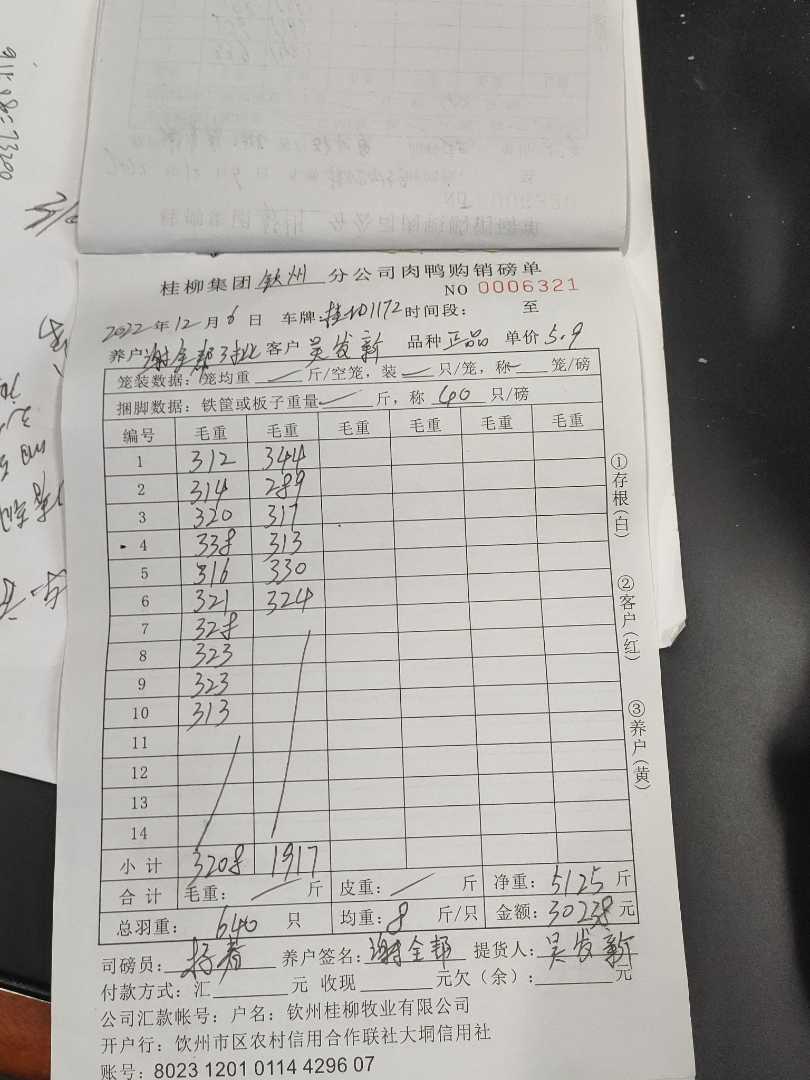 911.08=73200
桂柳集团 钦州 分公司肉鸭购销磅单
NO 0006321
2022年12月6日 车牌:桂 01172 时间段: 至
养户: 谢全帮 客户 吴发新 品种 正品 单价 5.9
笼装数据: 笼均重 斤/空笼, 装 只/笼, 称 笼/磅
捆脚数据: 铁筐或板子重量 斤, 称 40 只/磅
编号 毛重 毛重 毛重 毛重 毛重 毛重
1 312 344
2 314 289
3 320 317
4 338 313
5 316 330
6 321 324
7 328
8 323
9 323
10 313
11
12
13
14
小计 3208 1917
合计 毛重: 斤 皮重: 斤 净重: 5125 斤
总羽重: 640 只 均重: 8 斤/只 金额: 30238 元
司磅员: 养户签名: 谢全帮 提货人: 吴发新
付款方式: 汇 元 收现 元欠(余): 元
公司汇款帐号: 户名: 钦州桂柳牧业有限公司
开户行: 钦州市区农村信用合作联社大垌信用社
账号: 8023 1201 0114 4296 07
①存根(白)
②客户(红)
③养户(黄)